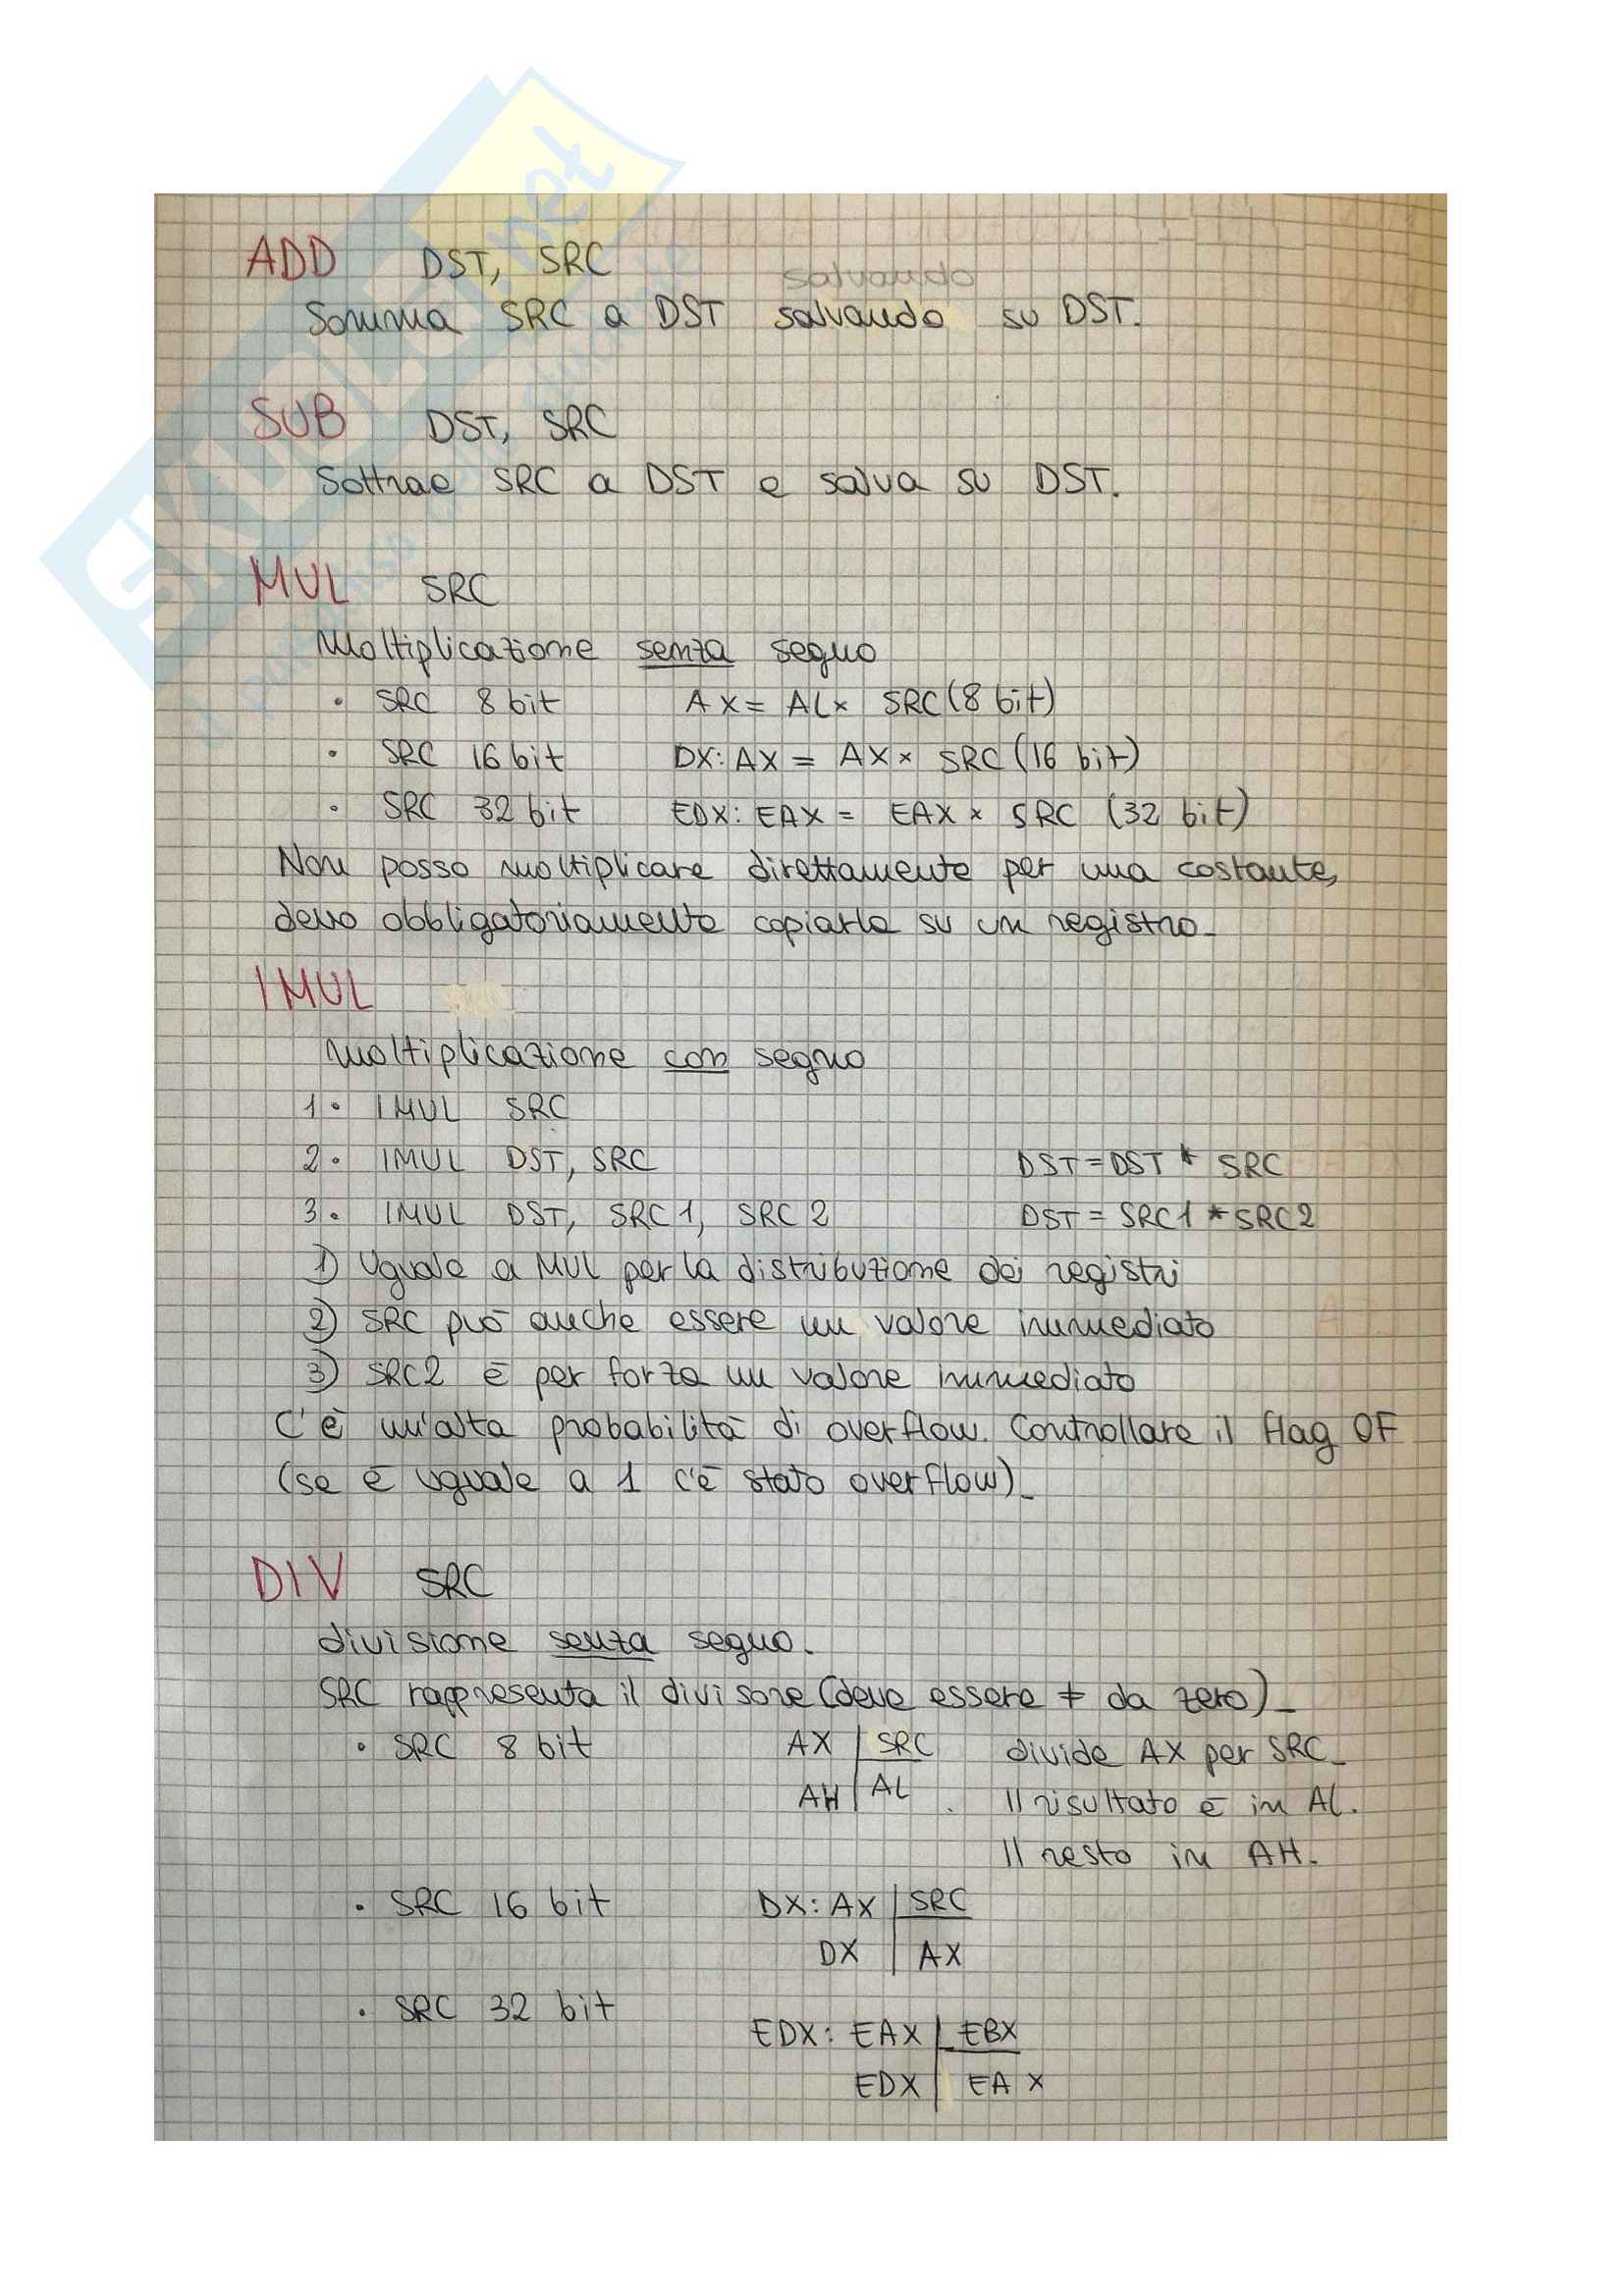 ADD DST, SRC
salvando
Somma SRC a DST salvando su DST.
SUB DST, SRC
Sottrae SRC a DST e salva su DST.
MUL SRC
Moltiplicazione senza segno
• SRC 8 bit AX = AL × SRC (8 bit)
• SRC 16 bit DX:AX = AX × SRC (16 bit)
• SRC 32 bit EDX:EAX = EAX × SRC (32 bit)
Non posso moltiplicare direttamente per una costante,
devo obbligatoriamente copiarla su un registro.
IMUL
moltiplicazione con segno
1. IMUL SRC
2. IMUL DST, SRC DST = DST * SRC
3. IMUL DST, SRC1, SRC2 DST = SRC1 * SRC2
1) Uguale a MUL per la distribuzione dei registri
2) SRC può anche essere un valore immediato
3) SRC2 è per forza un valore immediato
C'è un'alta probabilità di overflow. Controllare il flag OF
(se è uguale a 1 c'è stato overflow).
DIV SRC
divisione senza segno.
SRC rappresenta il divisore (deve essere ≠ da zero).
• SRC 8 bit AX | SRC divide AX per SRC.
AH | AL Il risultato è in AL.
Il resto in AH.
• SRC 16 bit DX:AX | SRC
DX | AX
• SRC 32 bit
EDX:EAX | EBX
EDX | EAX